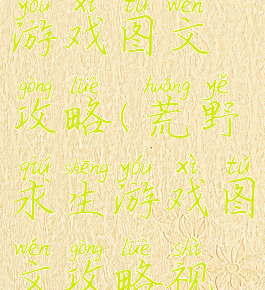 yóu xì tú wén
游戏图文
gōng lüè huāng yě
攻略(荒野
qiú shēng yóu xì tú
求生游戏图
wén gōng lüè shì
文攻略视